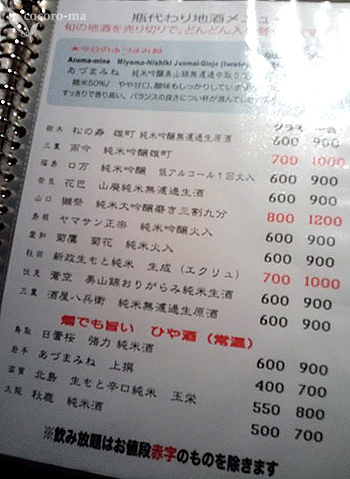 cocoro-ma
瓶代わり地酒メニュー
旬の地酒を売り切りで、どんどん入
★今日のおすすめ
Azuma-mine Miyama-Nishiki Junmai-Ginjo (Iwate
あづまみね 純米吟醸美山錦無濾過中取り
精米50%/ やや辛口、酸味もしっかりしていま
すっきりで香り高い、バランスの良さについ杯が進んでし
グラス 一合
栃木 松の寿 雄町 純米吟醸無濾過生原酒 600 900
三重 而今 純米吟醸雄町 700 1000
福島 口万 純米吟醸 低アルコール1回火入 600 900
奈良 花巴 山廃純米無濾過生酒 600 900
山口 獺祭 純米大吟醸磨き三割九分 800 1200
島根 ヤマサン正宗 純米吟醸火入 600 900
愛知 菊鷹 菊花 純米火入 600 900
秋田 新政生もと純米 生成(エクリュ) 700 1000
伏見 蒼空 美山錦おりがらみ純米生酒 600 900
三重 酒屋八兵衛 純米無濾過生原酒 600 900
燗でも旨い ひや酒(常温)
鳥取 日置桜 強力 純米酒 600 900
岩手 あづまみね 上撰 400 700
滋賀 北島 生もと辛口純米 玉栄 550 800
大阪 秋鹿 純米酒 500 700
※飲み放題はお値段赤字のものを除きます